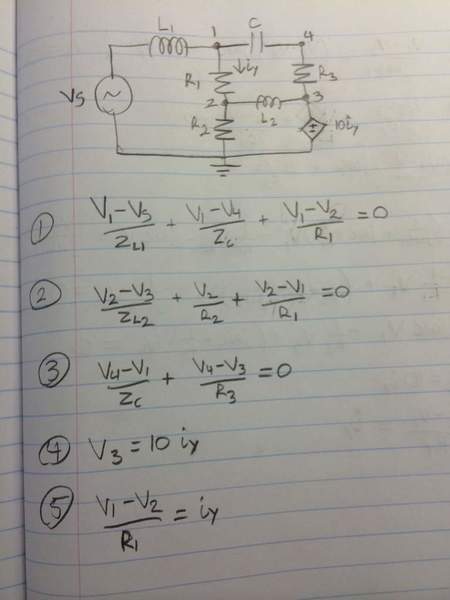 L1 1 C 4
R1 ↓iy R3
VS ~ 2 L2 3
R2 ± 10iy
① (V1-VS)/ZL1 + (V1-V4)/Zc + (V1-V2)/R1 = 0
② (V2-V3)/ZL2 + V2/R2 + (V2-V1)/R1 = 0
③ (V4-V1)/Zc + (V4-V3)/R3 = 0
④ V3 = 10 iy
⑤ (V1-V2)/R1 = iy